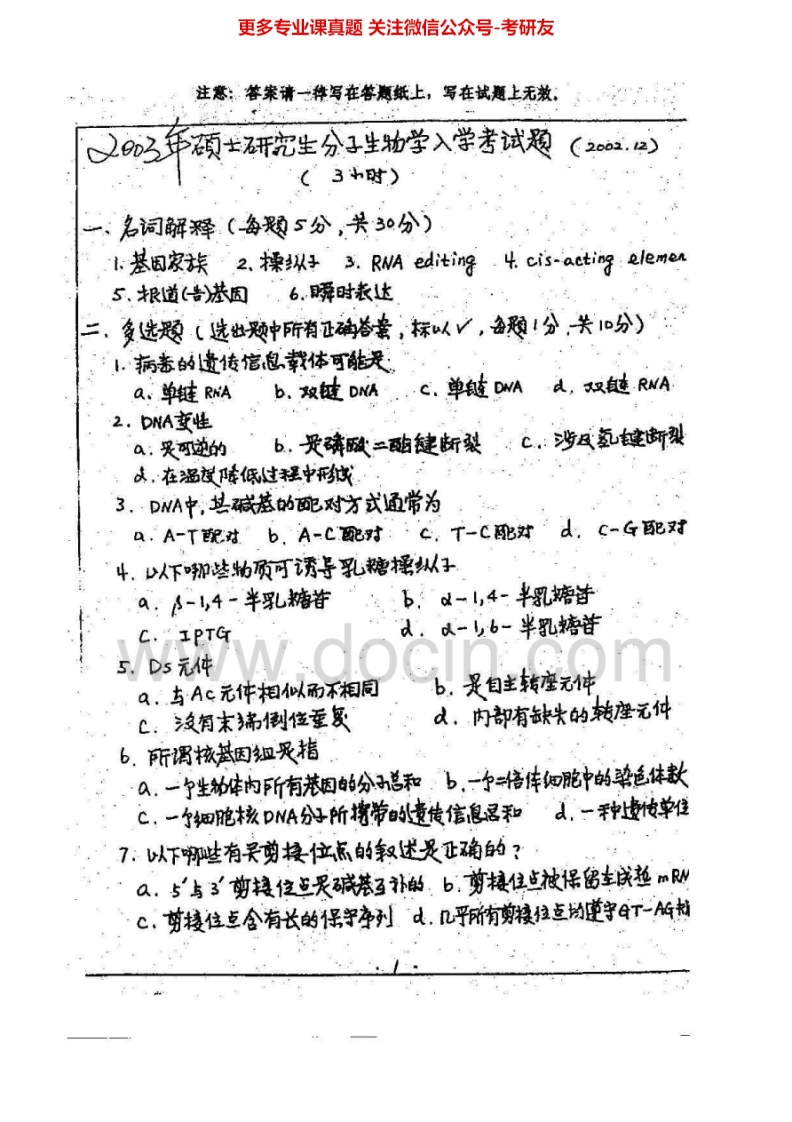 更多专业课真题 关注微信公众号-考研友
注意：答案请一律写在答题纸上，写在试题上无效。
2003年硕士研究生分子生物学入学考试题（2002.12）
（3小时）
一、名词解释（每题5分，共30分）
1. 基因家族 2. 操纵子 3. RNA editing 4. cis-acting elemen
5. 报道(告)基因 6. 瞬时表达
二、多选题（选出题中所有正确答案，标以✓，每题1分，共10分）
1. 病毒的遗传信息载体可能是
a. 单链 RNA b. 双链 DNA c. 单链 DNA d. 双链 RNA
2. DNA变性
a. 是可逆的 b. 是磷酸二酯键断裂 c. 涉及氢键断裂
d. 在温度降低过程中形成
3. DNA中，其碱基的配对方式通常为
a. A-T配对 b. A-C配对 c. T-C配对 d. C-G配对
4. 以下哪些物质可诱导乳糖操纵子
a. β-1,4-半乳糖苷 b. α-1,4-半乳糖苷
c. IPTG d. α-1,6-半乳糖苷
www.docin.com
5. Ds元件
a. 与Ac元件相似而不相同 b. 是自主转座元件
c. 没有末端倒位重复 d. 内部有缺失的转座元件
6. 所谓核基因组是指
a. 一个生物体内所有基因的分子总和 b. 一个二倍体细胞中的染色体数
c. 一个细胞核DNA分子所携带的遗传信息总和 d. 一种遗传单位
7. 以下哪些有关剪接位点的叙述是正确的？
a. 5′与3′剪接位点是碱基互补的 b. 剪接位点被保留在成熟mRN
c. 剪接位点含有长的保守序列 d. 几乎所有剪接位点均遵守GT-AG
1